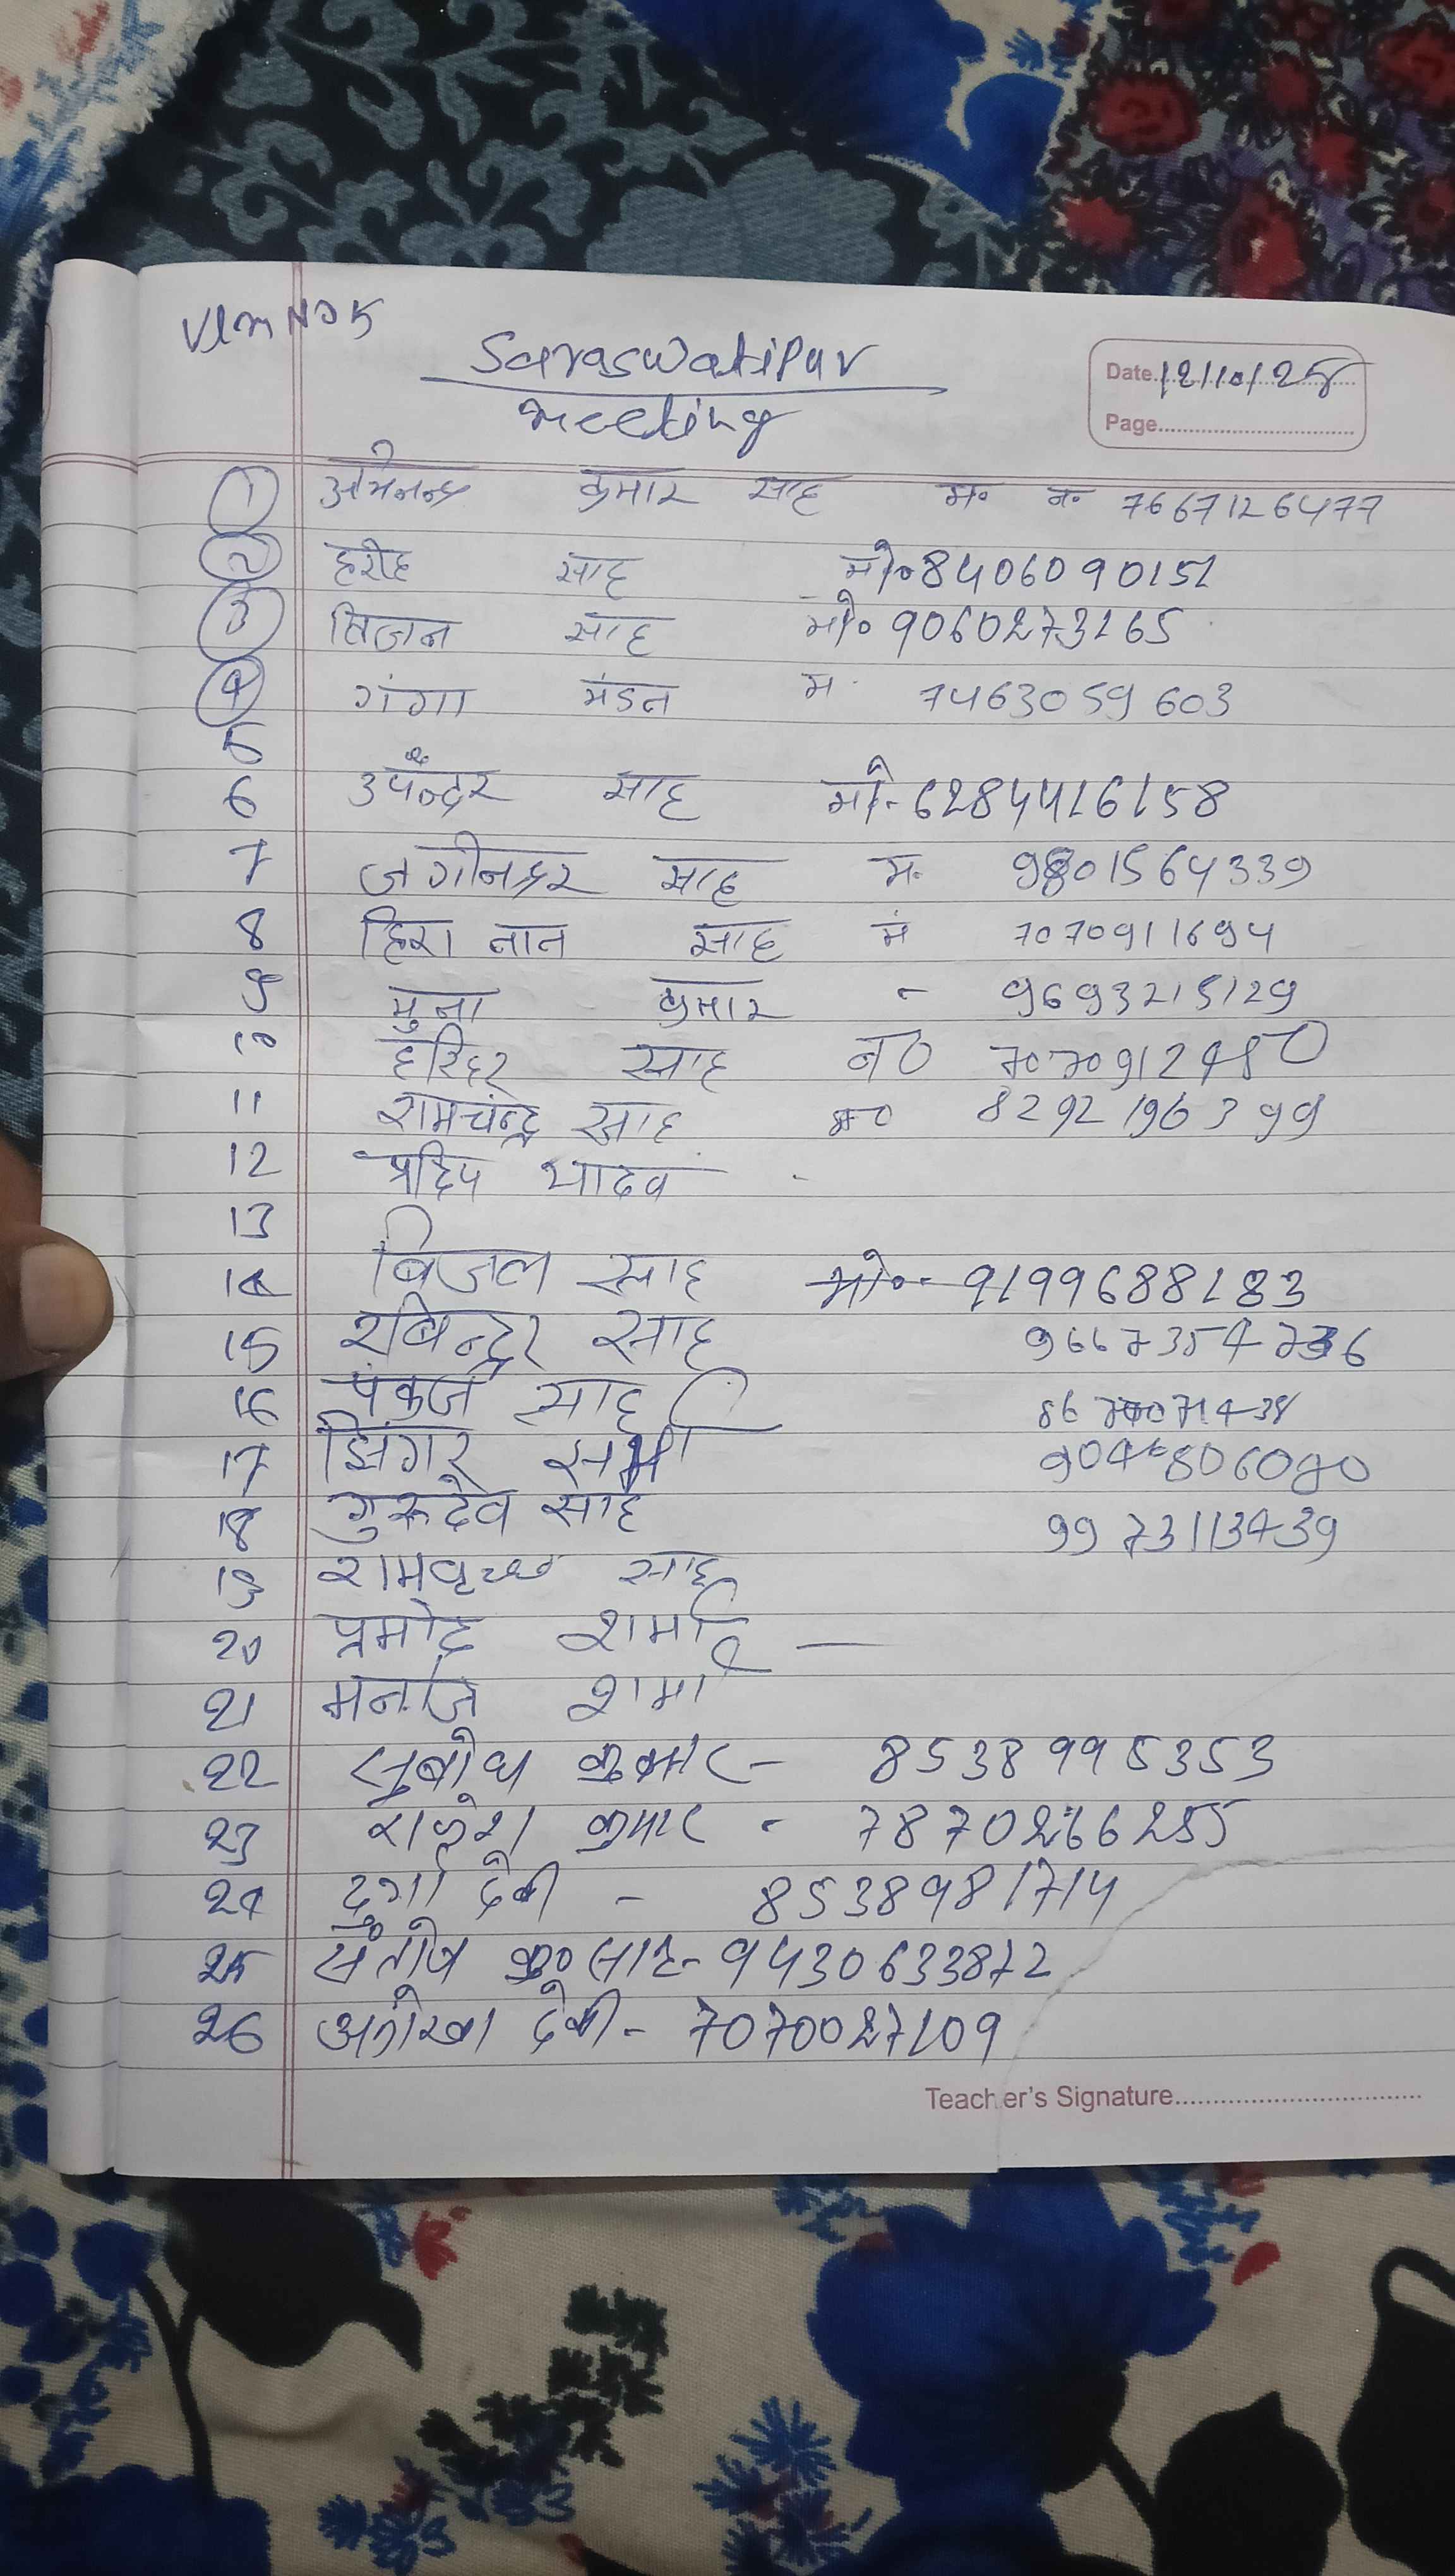 Saraswatipur
Meeting
Date 12/10/25
Page
1 कुमार साह म. न. 7667126477
2 साह मो० 8406090151
3 साह मो० 9060273165
4 गंगा मंडन म. 7463059603
5
6 उपेन्दर साह मो.- 6284416158
7 साह म. 9801564339
8 हिरा नान साह मं 7070911694
9 मुना कुमार - 9693215129
10 हरिहर साह न० 7070912480
11 रामचंन्द्र साह 8292196399
12 प्रदिप यादव
13
14 बिजल साह मो०- 9199688183
15 रबिन्द्रर साह
16 पंकज साह
17 झिंगर
18 गुरूदेव साह 9973113439
19 साह
20 प्रमोद शर्मा —
21 मनोज शर्मा
22 सुबोध कुमार - 8538995353
23 राजेश कुमार - 7870266255
24 दुर्गा देवी - 8538981714
25 संतोष कु० साह - 9430633872
26 देवी - 7070027109
Teacher's Signature